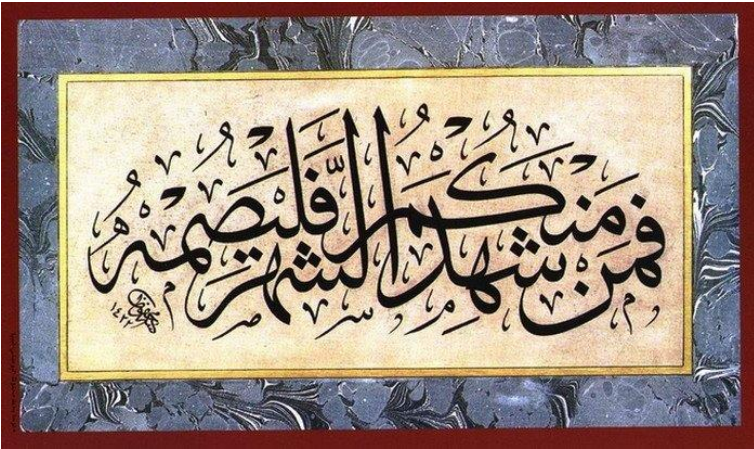 فَمَنْ شَهِدَ مِنْكُمُ الشَّهْرَ فَلْيَصُمْهُ
١٤٢٢